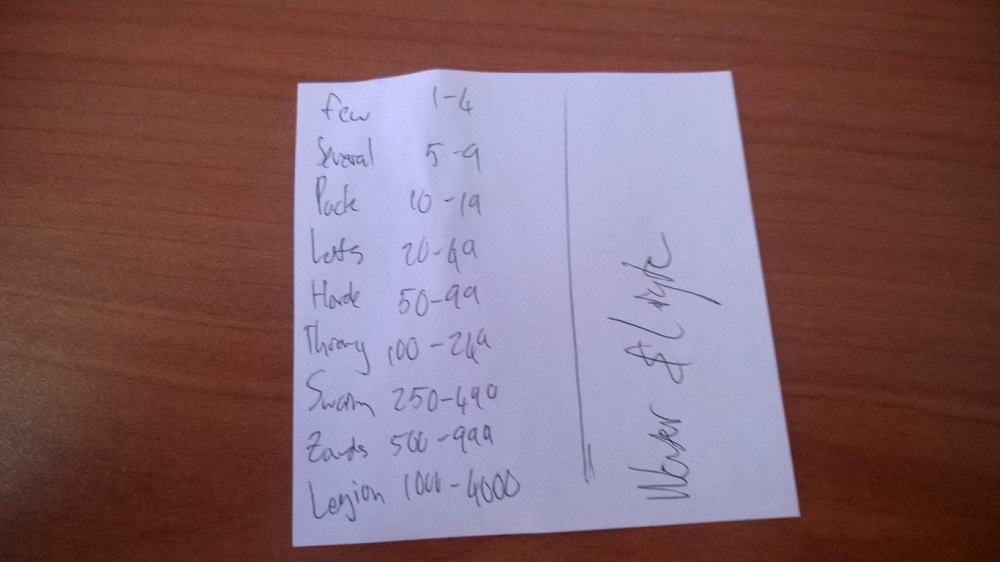 Few 1-4
Several 5-9
Pack 10-19
Lots 20-49
Horde 50-99
Throng 100-249
Swarm 250-499
Zounds 500-999
Legion 1000-4000